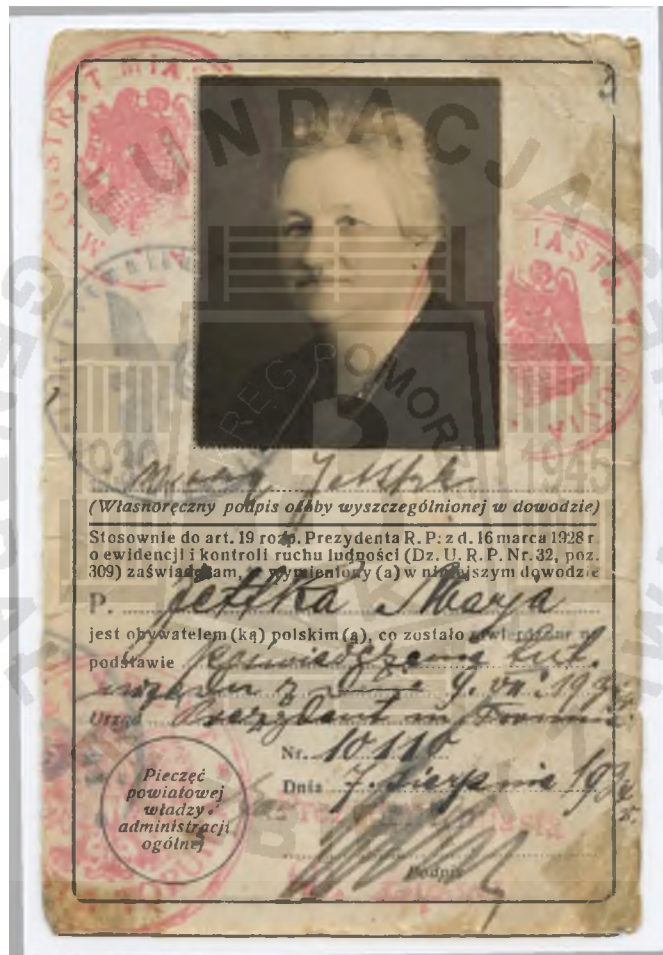 FUNDACJA
MAGISTRAT MIAS
MIASTA TORUNIA
OKRĘG POMORZE
1930 1945
Marja Jettka
(Własnoręczny podpis osoby wyszczególnionej w dowodzie)
Stosownie do art. 19 rozp. Prezydenta R. P. z d. 16 marca 1928 r
o ewidencji i kontroli ruchu ludności (Dz. U. R. P. Nr. 32, poz.
309) zaświadczam, wymieniony (a) w niniejszym dowodzie
P. Jettka Marja
jest obywatelem (ką) polskim (ą), co zostało stwierdzone na
podstawie poświadczenia
z dnia 9. VII.
Urząd Prezydent m. Torunia
Nr. 10110
Dnia 7. sierpnia
Pieczęć
powiatowej
władzy
administracji
ogólnej
Podpis